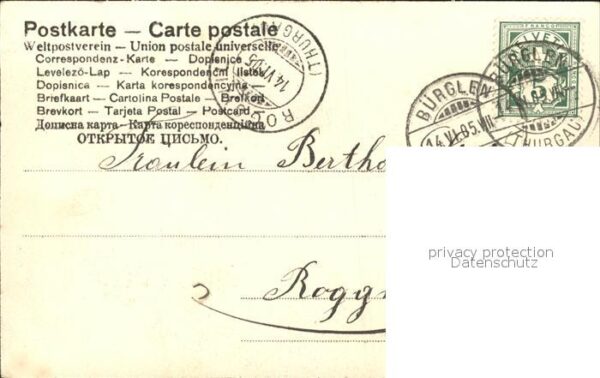 Postkarte — Carte postale
Weltpostverein — Union postale universelle
Correspondenz-Karte — Dopisnice
Levelező-Lap — Korespondenční lístek
Dopisnica — Karta korespondencyjna
Briefkaart — Cartolina Postale — Brefkort
Brevkort — Tarjeta Postal — Postcard
Дописна карта — Карта кореспонденційна
ОТКРЫТОЕ ПИСЬМО.
(THURGAU)
14.VI.05
BÜRGLEN
14.VI.05.VII
(THURGAU)
BÜRGLEN
HELVETIA
Fräulein Bertha
Rogg
privacy protection
Datenschutz